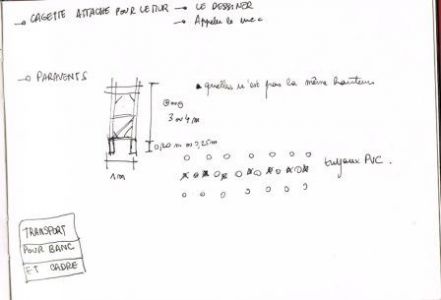 → CAGETTE ATTACHE POUR LE MUR → LE DESSINER
→ Appeler le mec
→ PARAVENTS
qu'elles n'est pas la même hauteur
3 ou 4 m
0,20 m ou 0,25m
1m
tuyaux PVC.
TRANSPORT
POUR BANC
ET CADRE